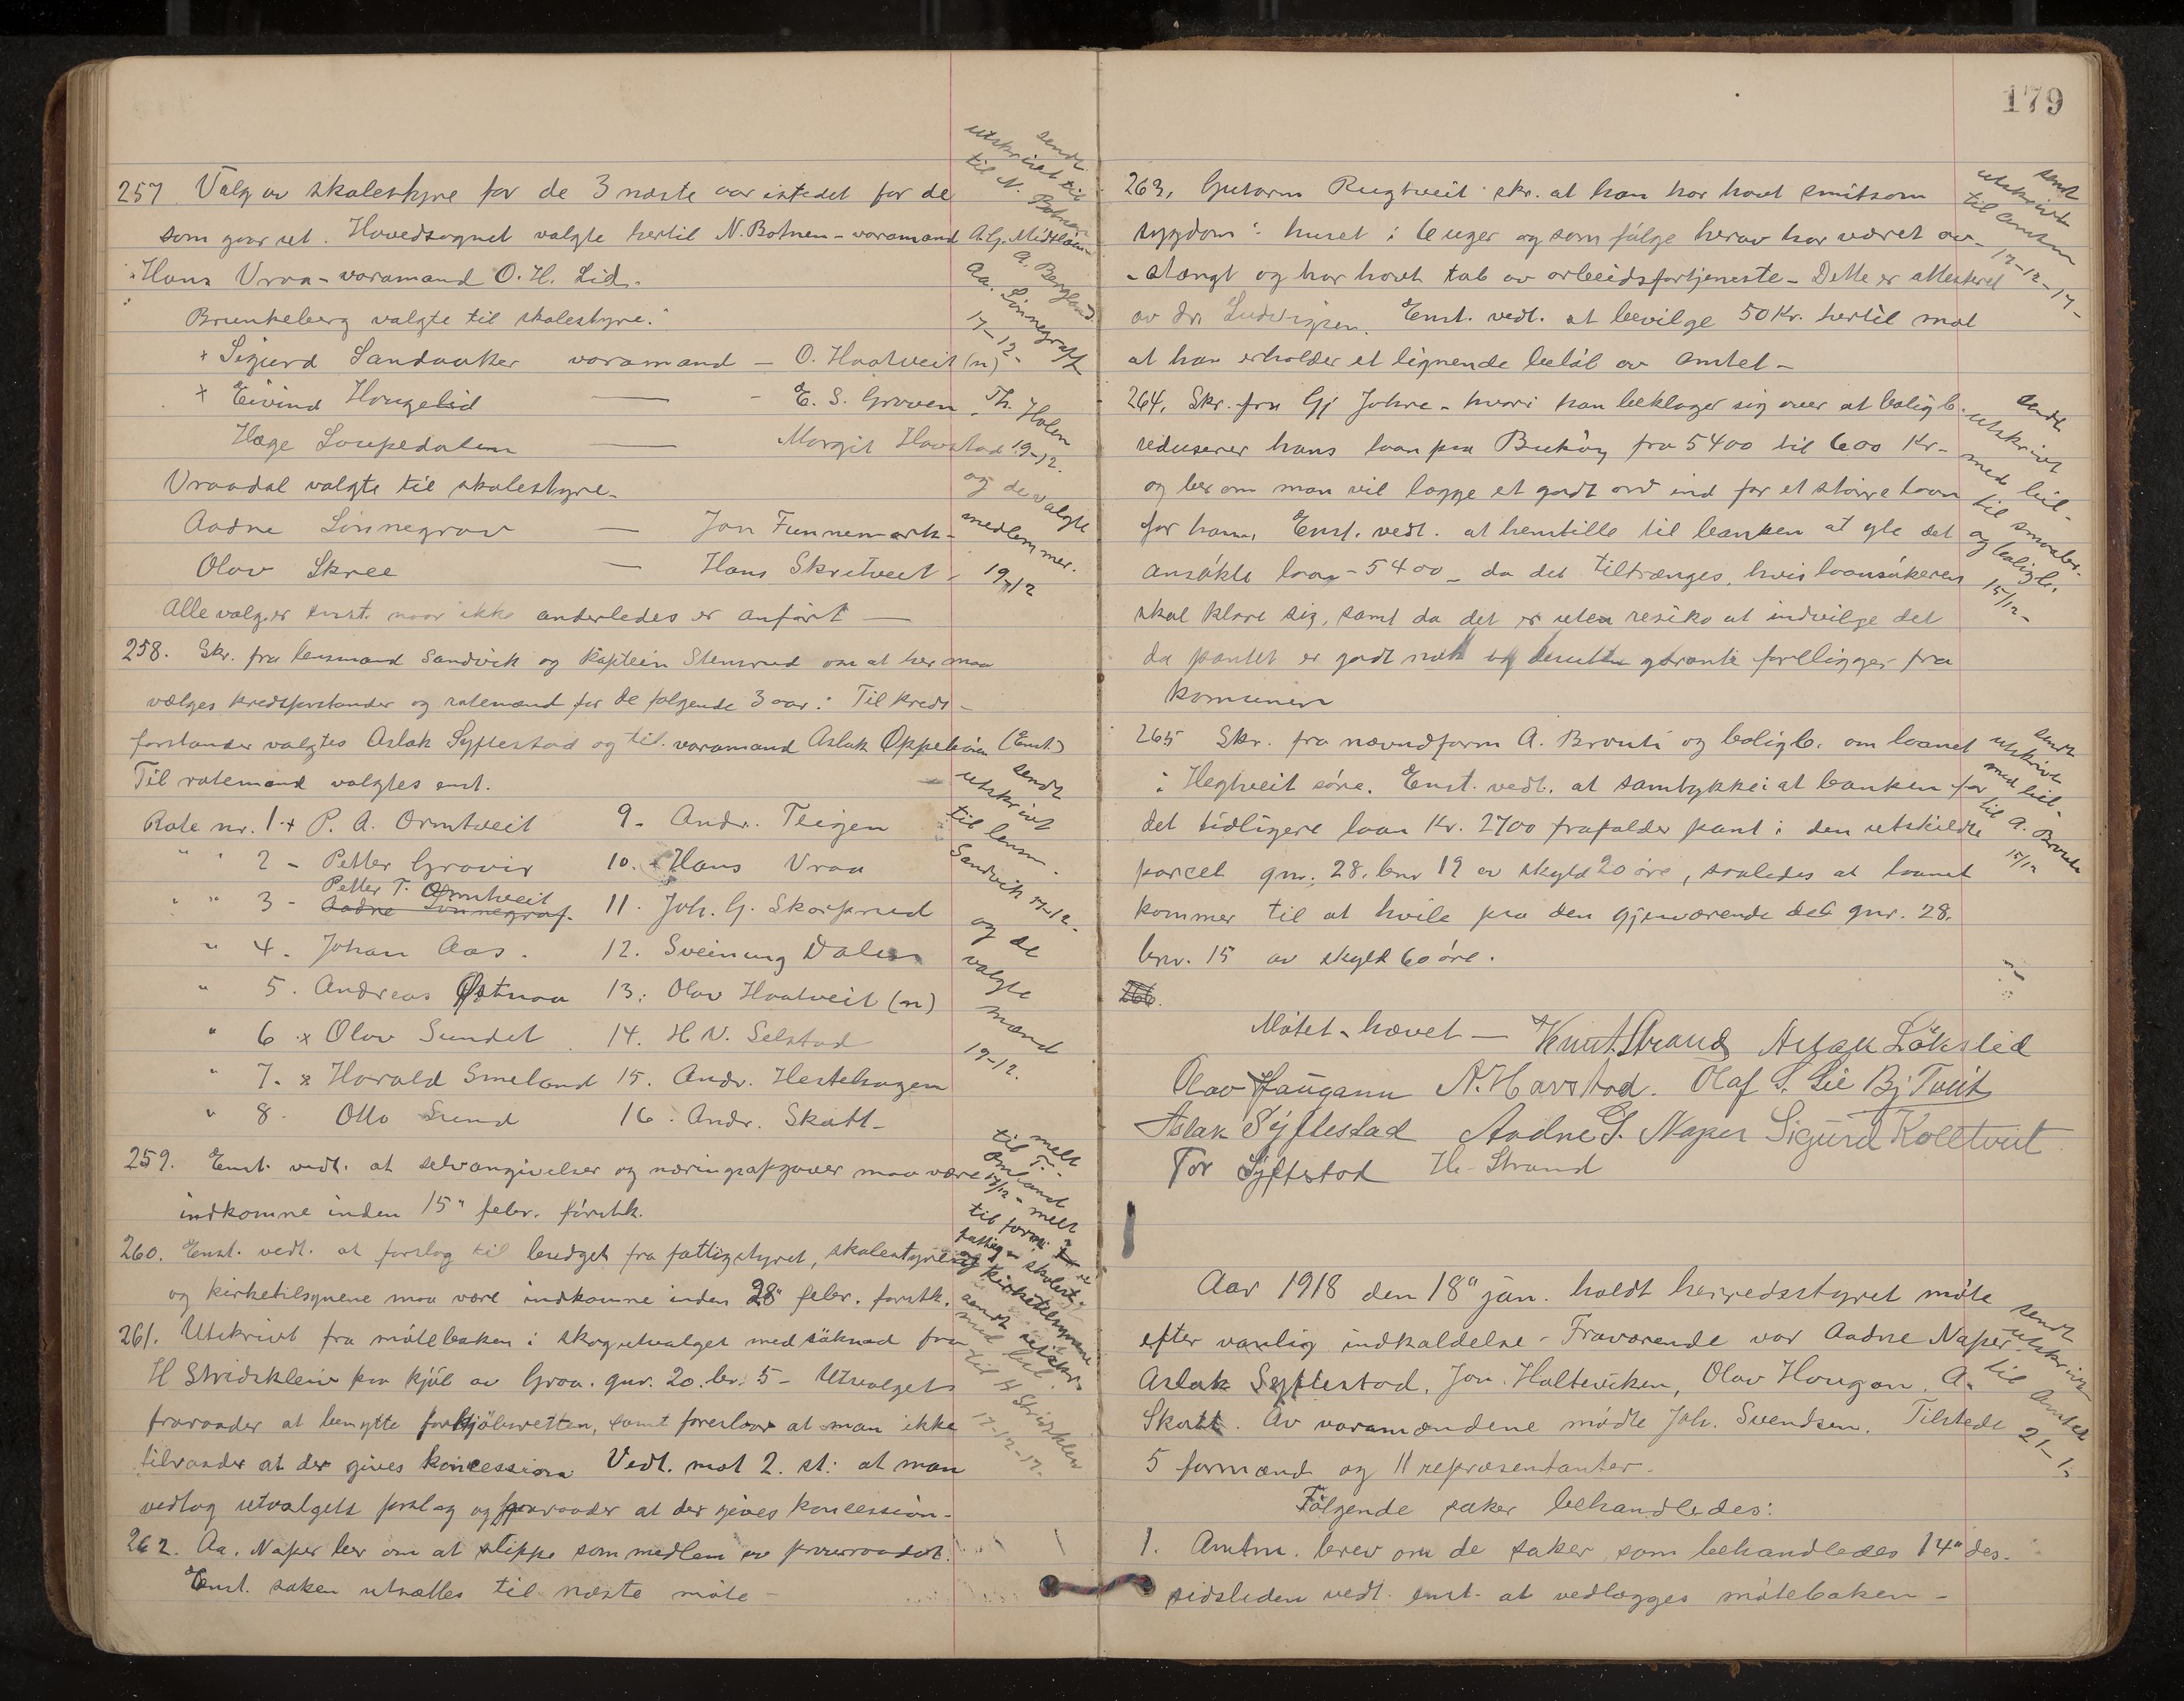 257. Valg av skolestyre for de 3 næste aar istedet for de
som gaar ut. Hovedsognet valgte hertil N. Botnen - varamand A.G. Midtlan
Hans Vraa - varamand O. H. Lid.
Brunkeberg valgte til skolestyre:
Sigurd Sandaaker varamand - O. Haatveit (n)
x Eivind Haugelid — - E. S. Groven
Hæge Loupedalen — Margit Havstad
Vraadal valgte til skolestyre -
Aadne Linnegrav — Jon Funnemark -
Olav Skree — Hans Skretveit -
Alle valg er enst. naar ikke anderledes er anført —
258. Skr. fra lensmand Sandvik og kaptein Stenvrud om at her maa
vælges kredsforstander og rotemænd for de følgende 3 aar: Til kreds-
forstander valgtes Aslak Syftestad og til varamand Aslak Oppebøen (Enst.)
Til rotemænd valgtes enst.
Rote nr. 1 + P. A. Ormtveit 9 - Andr. Teigen
" " 2 - Petter Gravir 10. Hans Vraa
Petter T. Ormtveit
" " 3 - Aadne Linnegraf. 11. Joh. G. Skarprud
" 4. Johan Aas. 12. Sveinung Dalen
" 5. Andreas Østnaa 13. Olav Haatveit (n)
" 6 x Olav Sundet 14. H N. Selstad
" 7. x Harald Smeland 15. Andr. Hestehagen
" 8. Otto Lund 16. Andr. Skatt -
259. Enst. vedt. at selvangivelser og næringsopgaver maa være
indkomne inden 15" febr. førstk.
260. Enst. vedt. at forslag til budget fra fattigstyret, skolestyrene
og kirketilsynene maa være indkomne inden 28" febr. førstk.
261. Utskrivt fra møteboken i skogutvalget med søknad fra
H Stridsklein paa kjøb av Graa. gnr. 20. br. 5 - Utvalget
fraraader at benytte forkjøbsretten, samt foreslaar at man ikke
tilraader at der gives koncession. Vedt. mot 2. st: at man
vedtog utvalgets forslag og fraraader at der gives koncession -
262. Aa. Naper ber om at slippe som medlem av provianteraadet.
Enst. saken utsættes til næste møte -
sendt
utskrivt til
til N. Botnen
A. Bergland
Aa. Linnegraff
17-12-
Th. Holen
19-12.
og de valgte
medlemmer.
19/12
sendt
utskrivt
til lensm.
Sandvik 17-12-
og de
valgte
mænd
19-12.
melt
til T.
Omland
17/12 - melt
til form i
fattig - skolesty
og kirketilsynene
sendt utskr.
med bil.
til H Stridsklein
17-12-17.
179
263. Gutorm Rugtveit skr. at han har havt smitsom
sygdom i huset i 6 uger og som følge herav har været av-
- stængt og har havt tab av arbeidsfortjeneste - Dette er attesteret
av dr. Ludvigsen. Enst. vedt. at bevilge 50 Kr. hertil mot
at han erholder et lignende beløb av amtet -
264. Skr. fra Gj Johre - hvori han beklager sig over at boligb.
reduserer hans laan paa Bukøy fra 5400 til 600 Kr-
og ber om man vil lægge et godt ord ind for et større laan
for ham. Enst. vedt. at henstille til banken at yte det
ansøkte laan - 5400 - da det tiltrænges, hvis laansøkeren
skal klare sig, samt da det er uten resiko at indvilge det
da pantet er godt nok og desuten garanti foreligger fra
komunen
265 Skr. fra nævndform A. Brauti og boligb. om laanet
i Hegtveit søre. Enst. vedt. at samtykke i at banken for
det tidligere laan Kr. 2700 frafalder pant i den utskildte
parcel gnr. 28. bnr 19 av skyld 20 øre, saaledes at laanet
kommer til at hvile paa den gjenværende del gnr. 28.
bnr. 15 av skyld 60 øre.
266.
Møtet hævet — Knut Strand Aslak Løkslid
Olav Haugann A. Havstad. Olaf S. Lie Bj Tveit
Aslak Syftestad Aadne G. Naper Sigurd Kolltveit
Tor Syftestad H. Strand
Aar 1918 den 18" jan. holdt herredsstyret møte
efter vanlig indkaldelse - Fraværende var Aadne Naper.
Aslak Syftestad, Jon. Holteviken, Olav Haugan, A.
Skatt. Av varamændene mødte Joh. Svendsen. Tilstede
5 formænd og 11 repræsentanter.
Følgende saker behandledes:
1. Amtm. brev om de saker, som behandledes 14" des.
sidstleden vedt. enst. at vedlægges møteboken -
sendt
utskrivt
til amtm
17-12-17-
sendt
utskrivt
med bil-
til smaabr.
og boligb.
15/12-
sendt
utskrivt
med bil-
til A. Brauti
15/12
sendt
utskrivt
til Amtet
21-1-